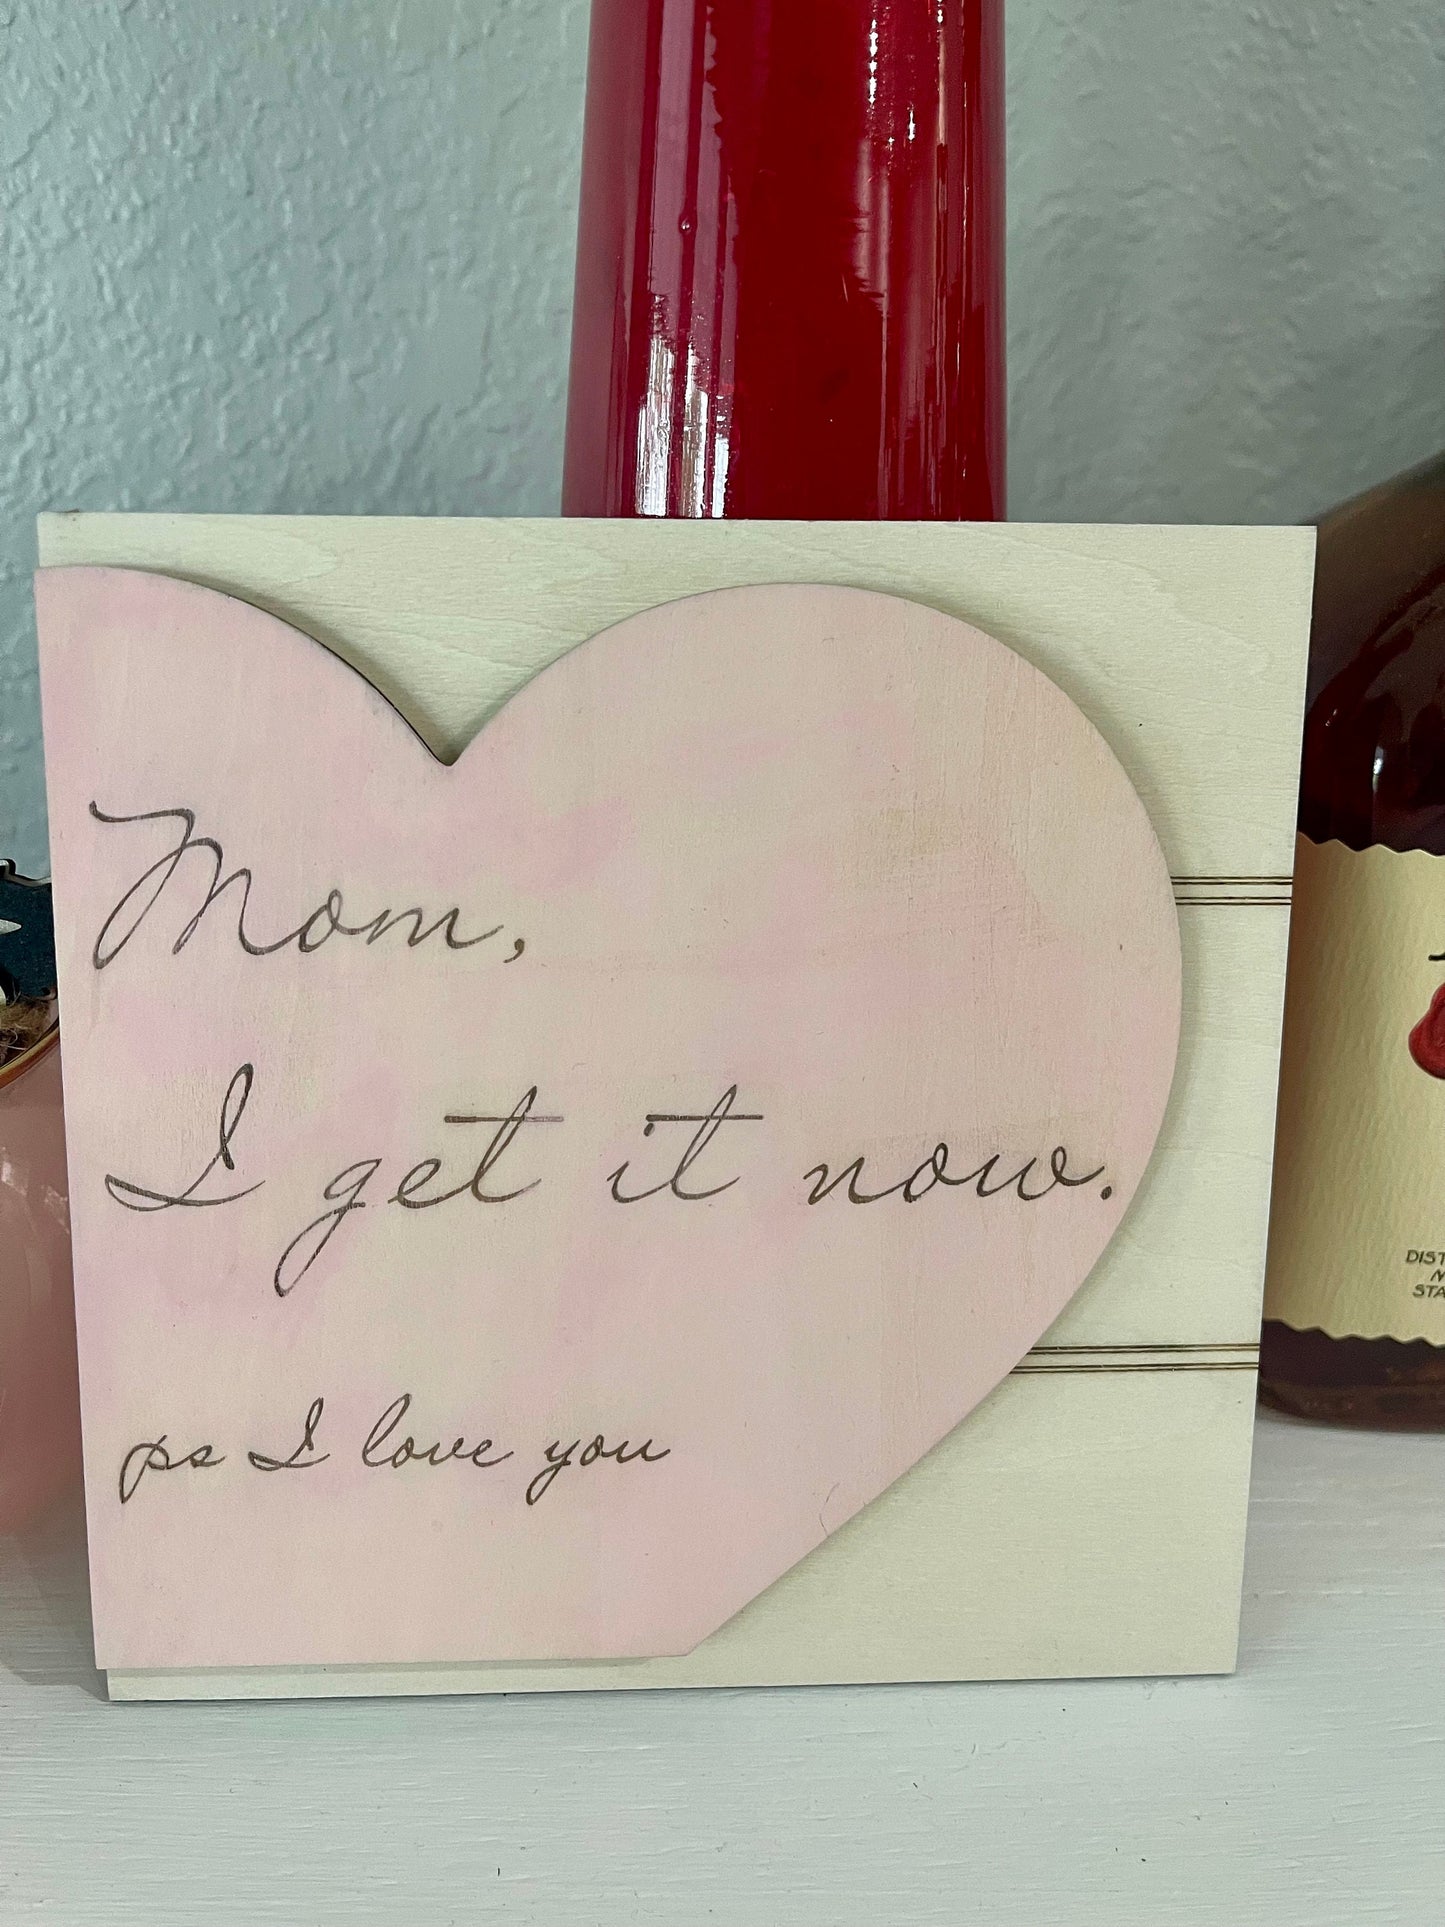 Mom,
I get it now.
ps I love you
DIST
STA